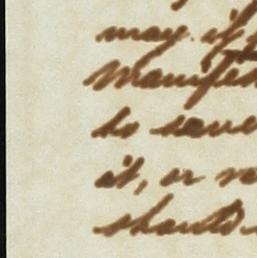 may if
Manifes
to save
it, or re
should